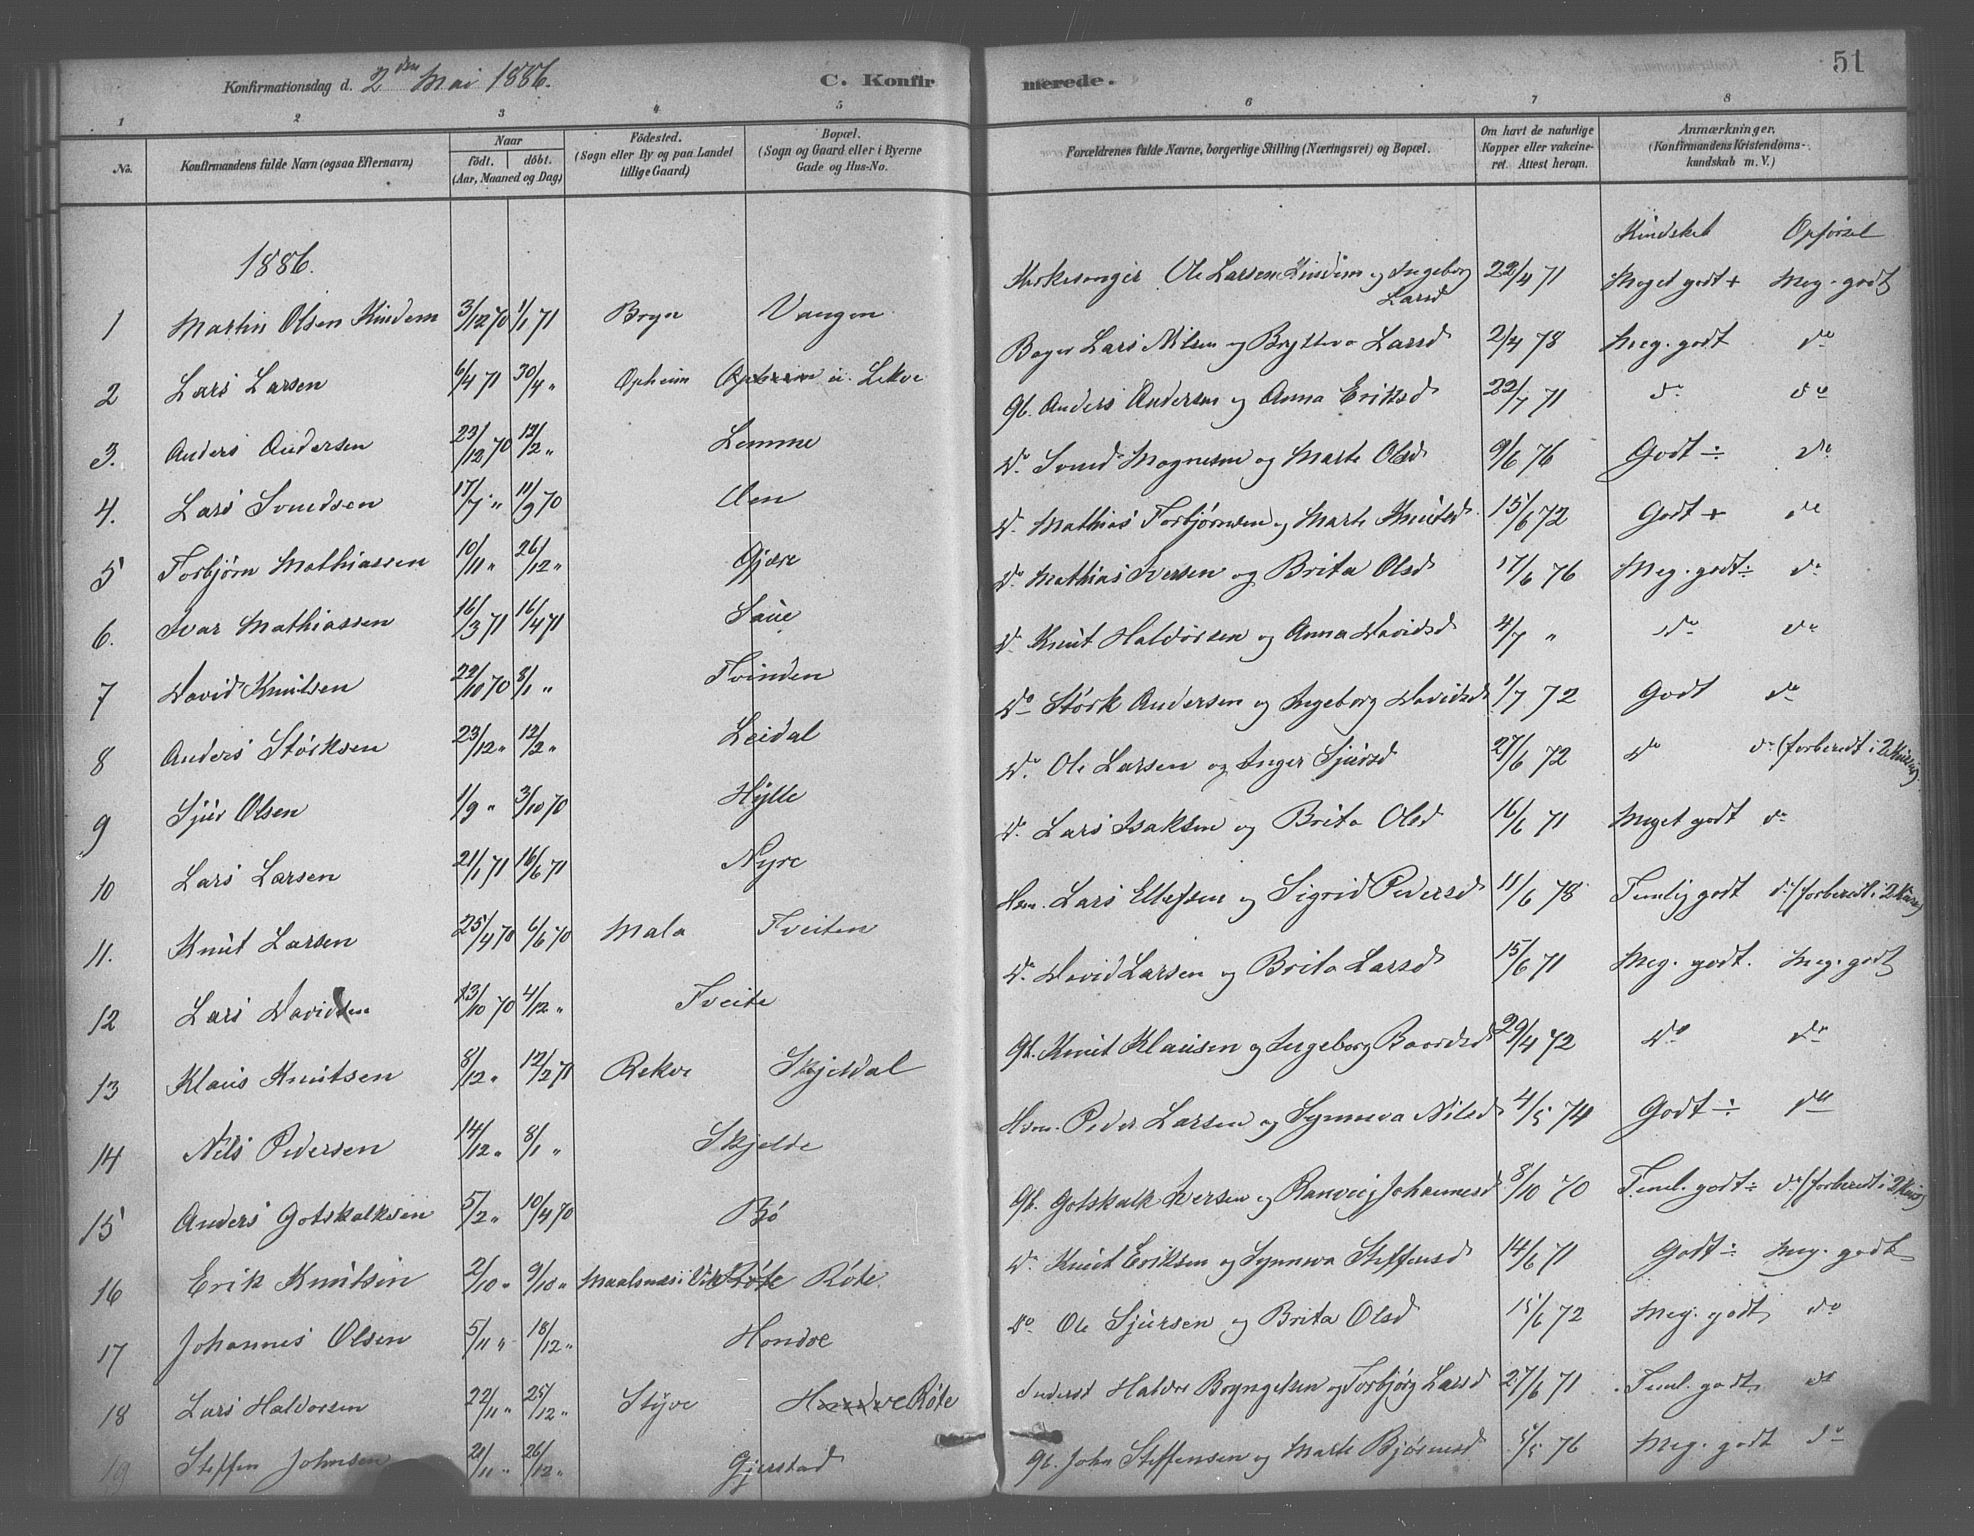 51
Konfirmationsdag d. 2den Mai 1886. C. Konfirmerede.
1 2 3 4 5 6 7 8
No. Konfirmandens fulde Navn (ogsaa Efternavn) Naar födt. döbt. (Aar, Maaned og Dag) Födested. (Sogn eller By og paa Landet tillige Gaard) Bopæl. (Sogn og Gaard eller i Byerne Gade og Hus-No. Forældrenes fulde Navne, borgerlige Stilling (Næringsvei) og Bopæl. Om havt de naturlige Kopper eller vakcineret. Attest herom. Anmærkninger. (Konfirmandens Kristendomskundskab m. V.)
1886. Kundskab Opførsel
1 Martin Olsen Kindem 3/12 70 1/1 71 Bryn Vangen Kirkesanger Ole Larsen Kindem og Ingeborg Larsd 22/4 71 Meget godt + Meg. godt
2 Lars Larsen 6/4 71 30/4 " Opheim Opheim u. Lekve Lars Nilsen og Bryteva Larsd 2/4 78 Meg. godt do
3. Anders Andersen 23/12 70 12/2 " Lemme Gb. Anders Andersen og Anna Eriksd 22/7 71 do do
4. Lars Svendsen 17/7 " 11/9 70 Uen Do. Svend Magnesen og Marte Olsd 9/6 76 Godt ÷ do
5 Torbjørn Mathiassen 10/11 " 26/12 " Gjære Do. Mathias Torbjørnsen og Marte Knutsd 15/6 72 Godt + do
6. Ivar Mathiassen 16/3 71 16/4 71 Saue Do Mathias Iversen og Brita Olsd 17/6 76 Meg. godt ÷ do
7 David Knutsen 22/10 70 8/1 " Tvinden Do Knut Haldorsen og Anna Davidsd 4/7 " do do
8 Anders Størksen 23/12 " 12/2 " Leidal Do Størk Andersen og Ingeborg Davidsd 1/7 72 Godt do
9 Sjur Olsen 1/9 " 3/10 70 Hylle Do. Ole Larsen og Inger Sjursd 27/6 72 do do (forberedt i 2
10 Lars Larsen 21/1 71 16/6 71 Nyre Do. Lars Isaksen og Brita Olsd 16/6 71 Meget godt do
11. Knut Larsen 25/4 70 6/6 70 Mala Tveiten Hsm. Lars Ellefsen og Sigrid Pedersd 11/6 78 Temlig godt do (forberedt i 2
12 Lars Davidsen 13/10 70 4/12 " Tveite Do. David Larsen og Brita Larsd 15/6 71 Meg. godt. Meg. godt
13 Klaus Knutsen 8/12 " 12/2 71 Rekve Skjeldal Gb. Knut Klausen og Ingeborg Baardsd 29/4 72 Do do
14 Nils Pedersen 14/12 " 8/1 " Skjelde Hsm. Peder Larsen og Synneva Nilsd 4/5 74 Godt ÷ do
15 Anders Gotskalksen 5/2 " 10/4 70 Bø Gb. Gotskalk Iversen og Ranveig Johannesd 8/10 70 Teml. godt ÷ do (forberedt i 2
16 Erik Knutsen 2/10 " 9/10 " Røte Do Knut Eriksen og Synneva Steffensd 14/6 71 Godt ÷ Meg. godt
17 Johannes Olsen 5/11 " 18/12 " Hondve Do. Ole Sjursen og Brita Olsd 15/6 72 Meg. godt do
18 Lars Haldorsen 22/11 " 25/12 " Styve Hondve Røte Inderst Haldor Bryngelsen og Torbjørg Larsd 27/6 71 Teml. godt do
19 Steffen Johnsen 21/11 " 26/12 " Gjerstad Gb. John Steffensen og Marte Bjørnesd 5/5 76 Meg. godt do